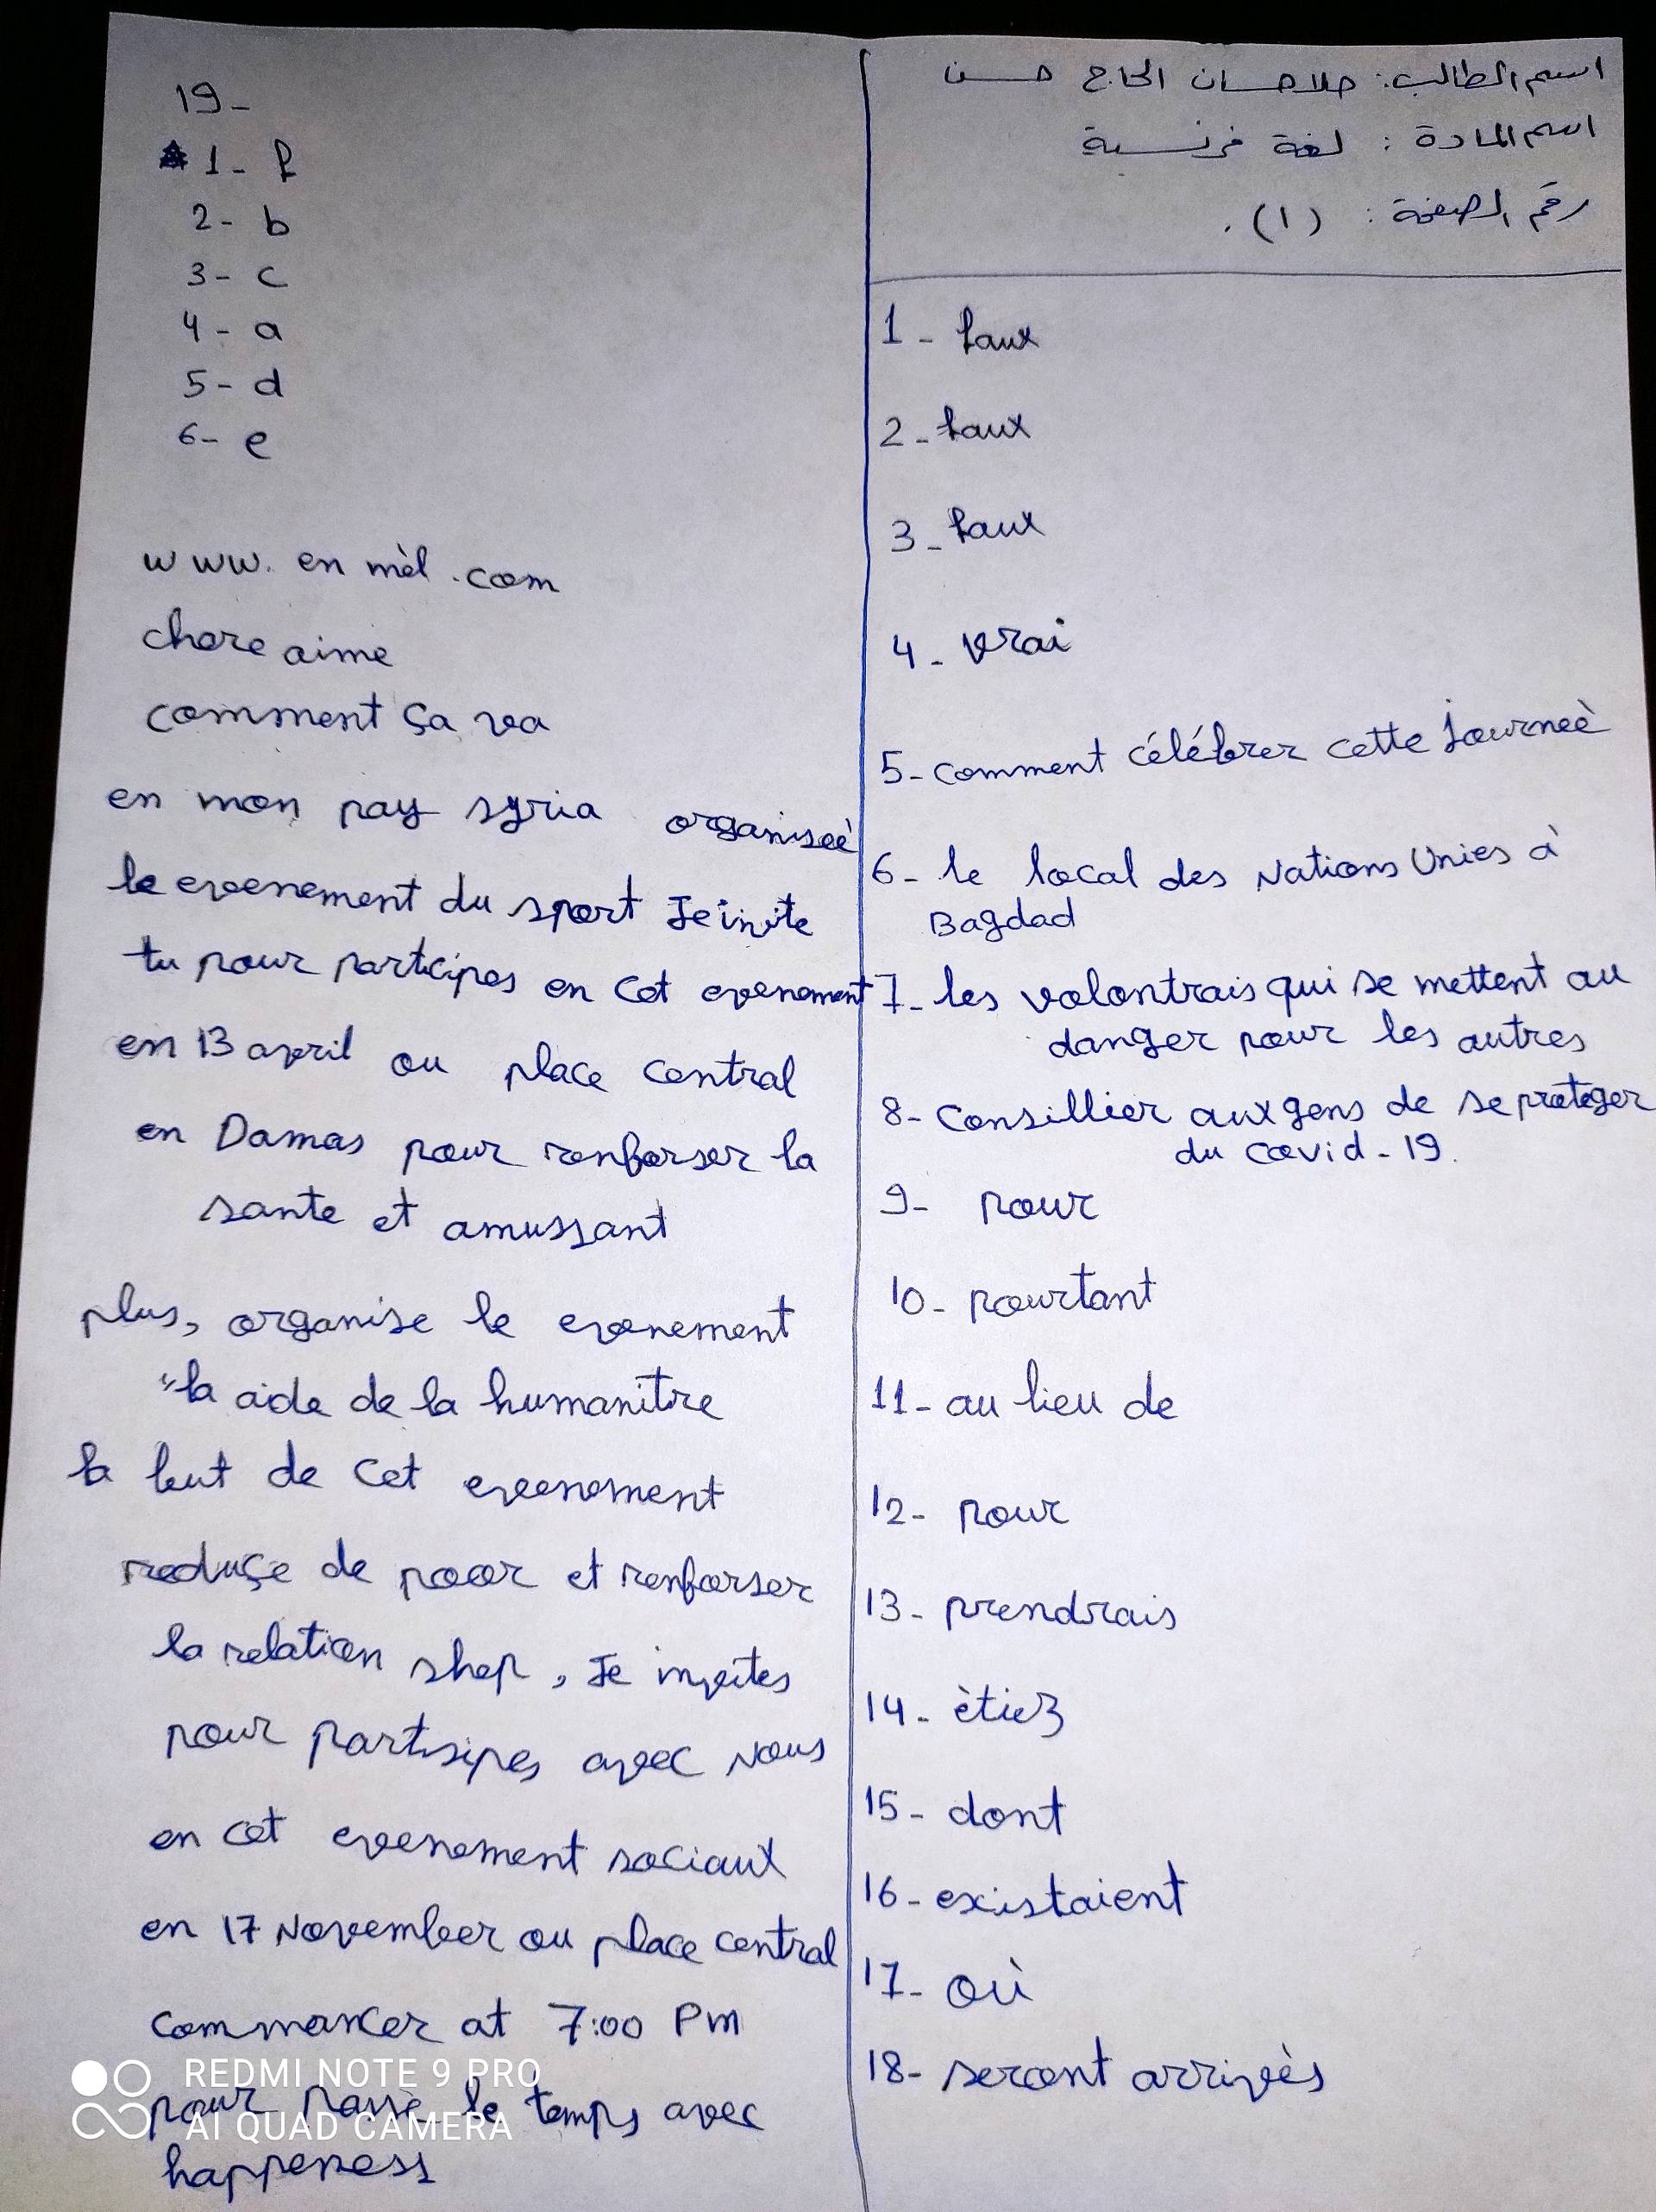 اسم الطالب: حلا حسان الحاج حسن
اسم المادة: لغة فرنسية
رقم الصفحة: (١).
1- faux
2- faux
3- faux
4- vrai
5- comment célébrer cette journeè
6- le local des Nations Unies à
Bagdad
7- les volontrais qui se mettent au
danger pour les autres
8- Consillier aux gens de se proteger
du covid-19.
9- pour
10- pourtant
11- au lieu de
12- pour
13- prendrais
14- ètiez
15- dont
16- existaient
17- où
18- seront arrivès
19-
1- f
2- b
3- c
4- a
5- d
6- e
www.en mèl.com
chere aime
comment ça va
en mon pay syria organiseè
le evenement du sport Je invite
tu pour participes en cet evenement
en 13 april ou place central
en Damas pour renforser la
sante et amussant
plus, organise le evenement
"la aide de la humanitire
la but de cet evenement
reduçe de poor et renforser
la relation shep, Je invites
pour partisipes avec Nous
en cet evenement sociaux
en 17 November ou place central
commancer at 7:00 Pm
pour passe le temps avec
happeness
REDMI NOTE 9 PRO
AI QUAD CAMERA